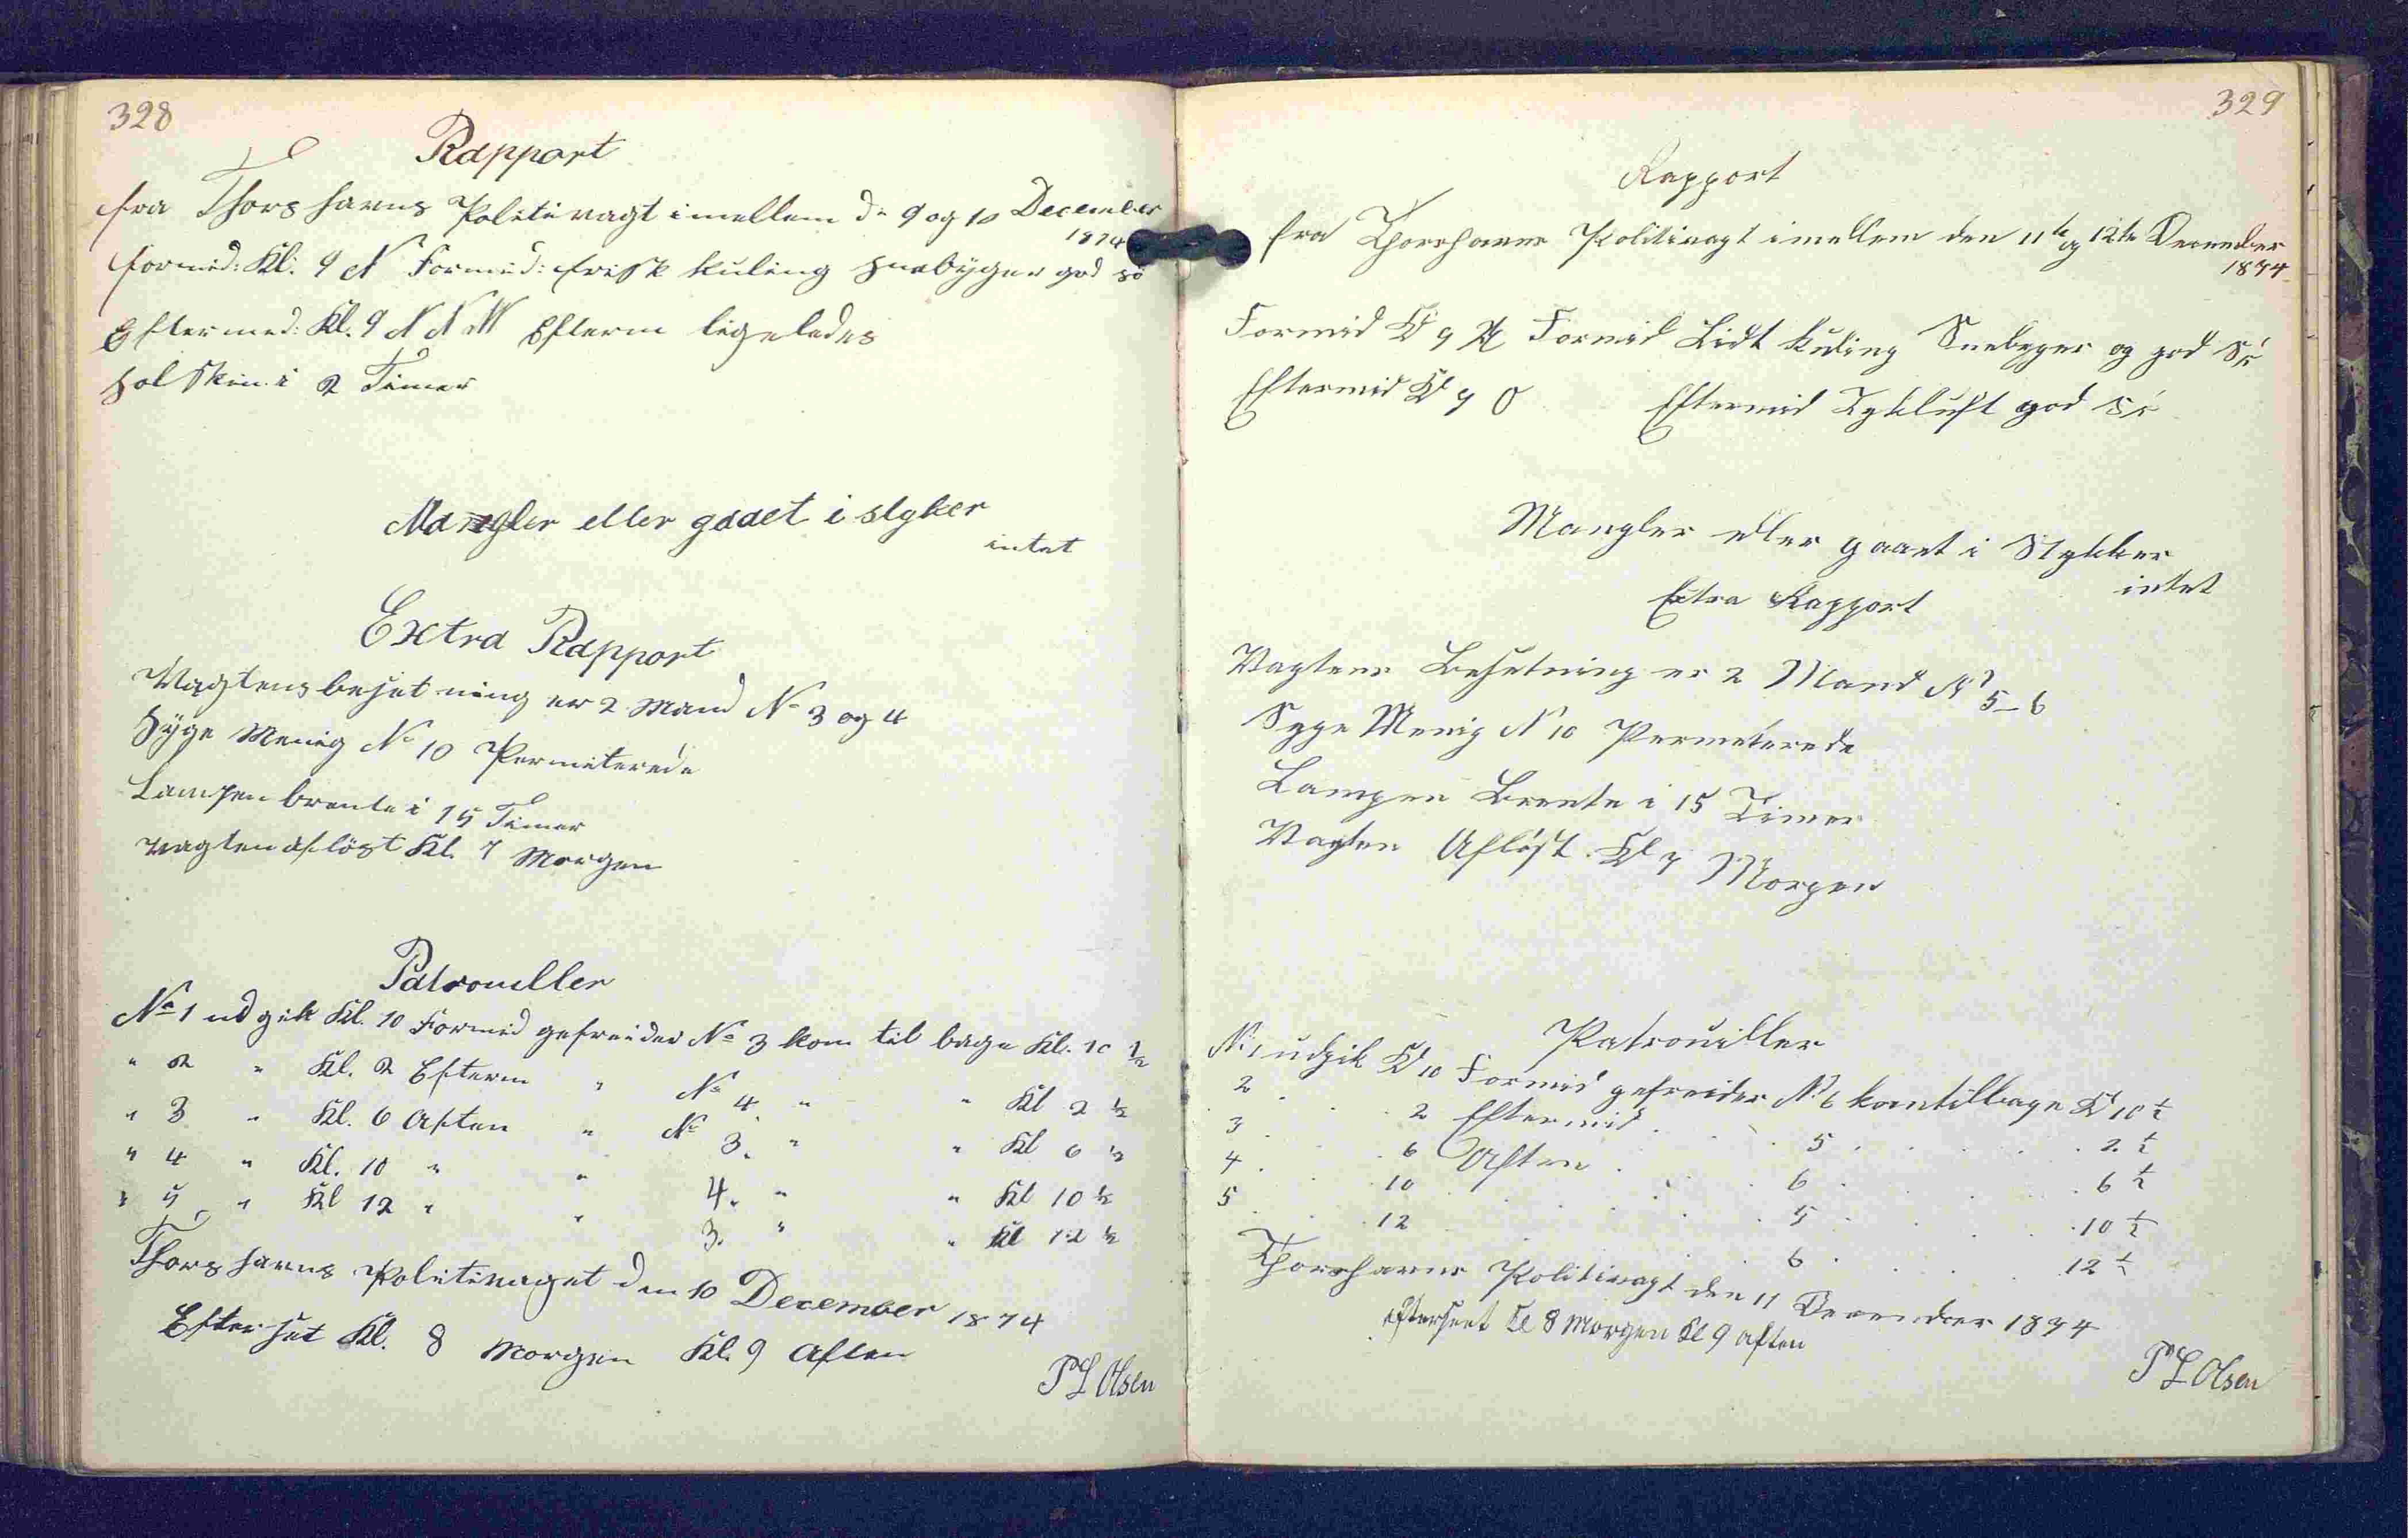 328
Rapport
fra Thorshavns Politivagt imellem d: 9 og 10 December
1874
formid: Kl: 9 N Formid: frisk kuling snebÿger god sö
Eftermed: Kl. 9 N N W Efterm ligeledes
solskin i 2 Timer
Mangler eller gaaet i styker
intet
Extra Rapport
Vagtens besætning er 2 Mand No 3 og 4
Sÿge Menig No 10 Permiterede
Lampen brente i 15 Timer
vagten aflöst Kl. 7 Morgen
Patrouller
No 1 udgik Kl. 10 Formid gefreider No 3 kom til bage Kl. 10 ½
" 2 " Kl. 2 Efterm " No 4 " " Kl 2 ½
" 3 " Kl. 6 Aften " No 3. " " Kl 6 ½
" 4 " Kl. 10 " " 4. " " Kl 10 ½
" 5 " Kl 12 " " 3. " " Kl 12 ½
Thorshavns Politivaget den 10 December 1874
Efterset Kl. 8 Morgen Kl. 9 Aften
P L Olsen
329
Rapport
fra Thorshavns Politivagt imellem den 11te og 12te December
1874
Formid Kl 9 N Formid Lidt Kuling Sneebyger og god Sø
Eftermid Kl 9 O Eftermid Tykluft god Sø
Mangler eller gaaet i Stykker
intet
Extra Rapport
Vagtens Besetning er 2 Mand No 5 - 6
Syge Menig No 10 Permeterede
Lampen Brente i 15 Timer
Vagten Afløst. Kl 7 Morgen
Patrouiller
No 1 udgik Kl 10 Formid gefreider No 6 kom tilbage Kl 10 ½
2 . . 2 Eftermid . . 5 . . . 2 ½
3 . . 6 Aften . . 6 . . . 6 ½
4 . . 10 . . . 5 . . . 10 ½
5 . . 12 . . . 6 . . . 12 ½
Thorshavns Politivagt den 11 December 1874
Efterseet Kl 8 Morgen Kl 9 Aften
P L Olsen